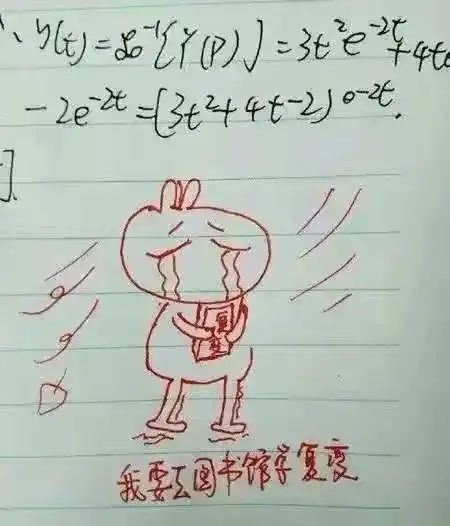 y(t) = ℒ⁻¹{Y(p)} = 3t²e^{-2t} + 4te
-2e^{-2t} = (3t²+4t-2)e^{-2t}.
].
复
变
我要去图书馆学复变